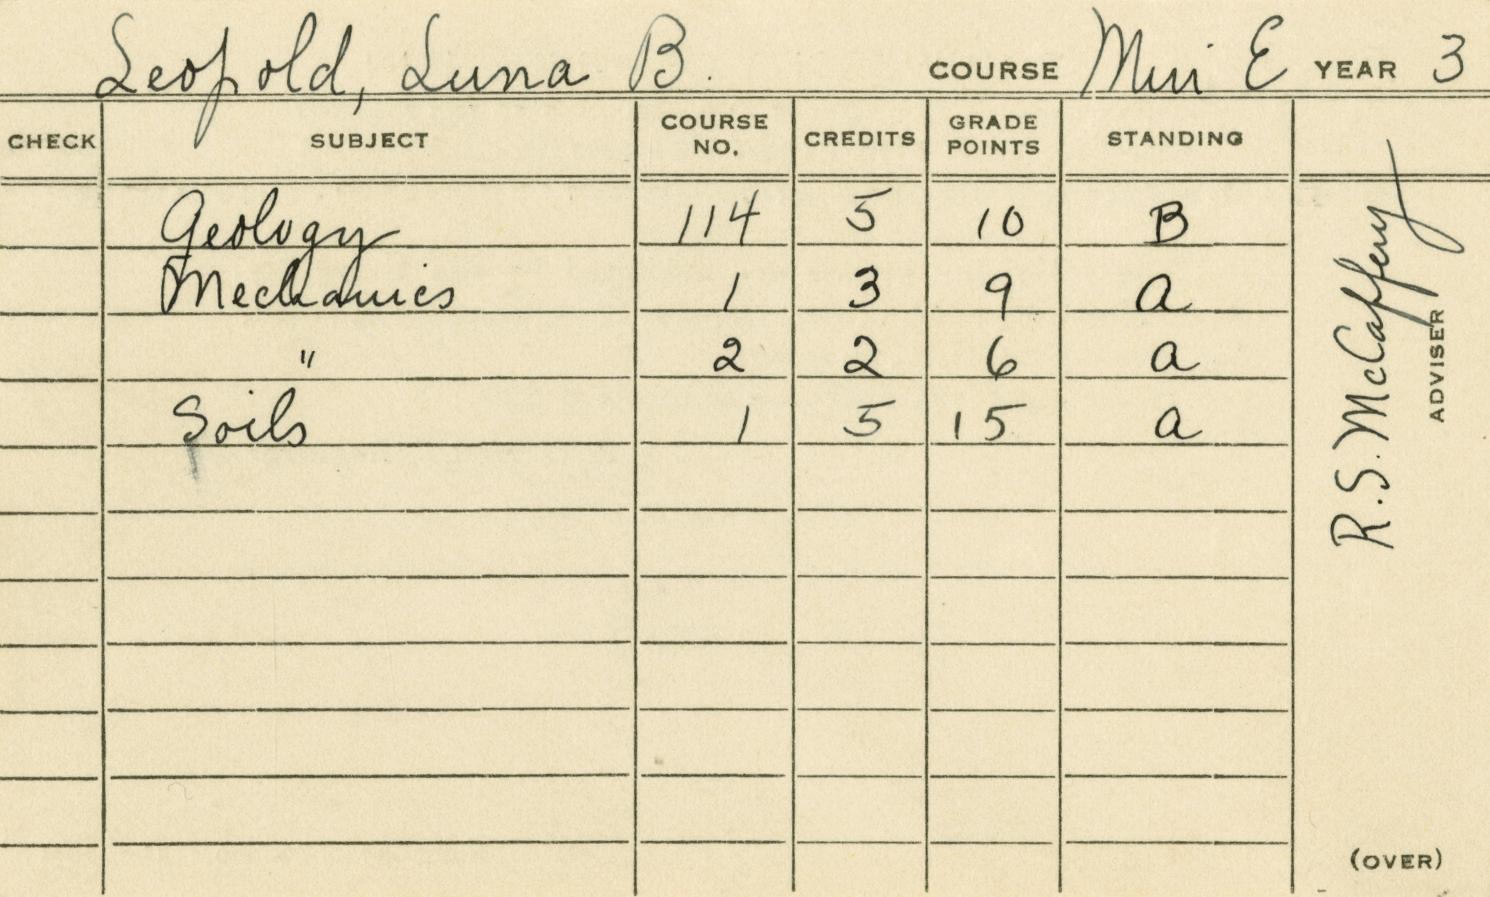 Leopold, Luna B. COURSE Min E YEAR 3
CHECK SUBJECT COURSE NO. CREDITS GRADE POINTS STANDING
Geology 114 5 10 B
Mechanics 1 3 9 a
" 2 2 6 a
Soils 1 5 15 a
R.S. McCaffery
ADVISER
(OVER)